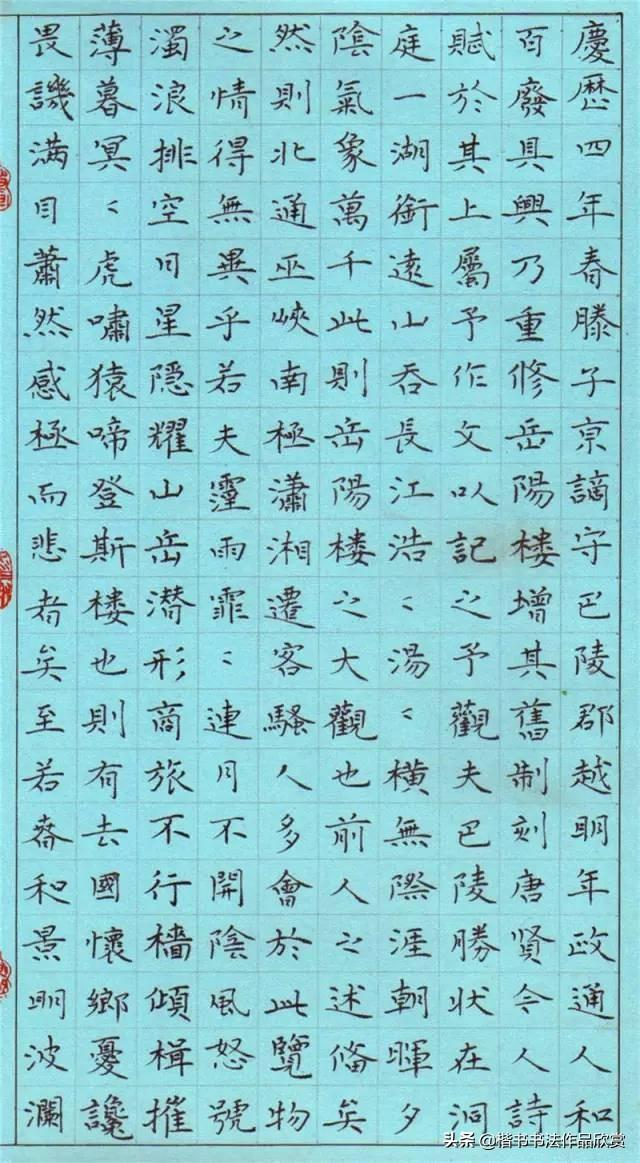 慶歷四年春滕子京謫守巴陵郡越明年政通人和
百廢具興乃重修岳陽楼增其舊制刻唐贤今人詩
賦於其上屬予作文以記之予觀夫巴陵勝状在洞
庭一湖銜遠山吞長江浩〻湯〻横無際涯朝暉夕
陰氣象萬千此則岳陽楼之大觀也前人之述俻矣
然則北通巫峽南極瀟湘遷客騷人多會於此覽物
之情得無異乎若夫霪雨霏〻連月不開陰風怒號
濁浪排空日星隠耀山岳潜形商旅不行檣傾楫摧
薄暮冥〻虎嘯猿啼登斯楼也則有去國懷鄉憂讒
畏譏满目蕭然感極而悲者矣至若春和景明波瀾
头条@楷书书法作品欣赏